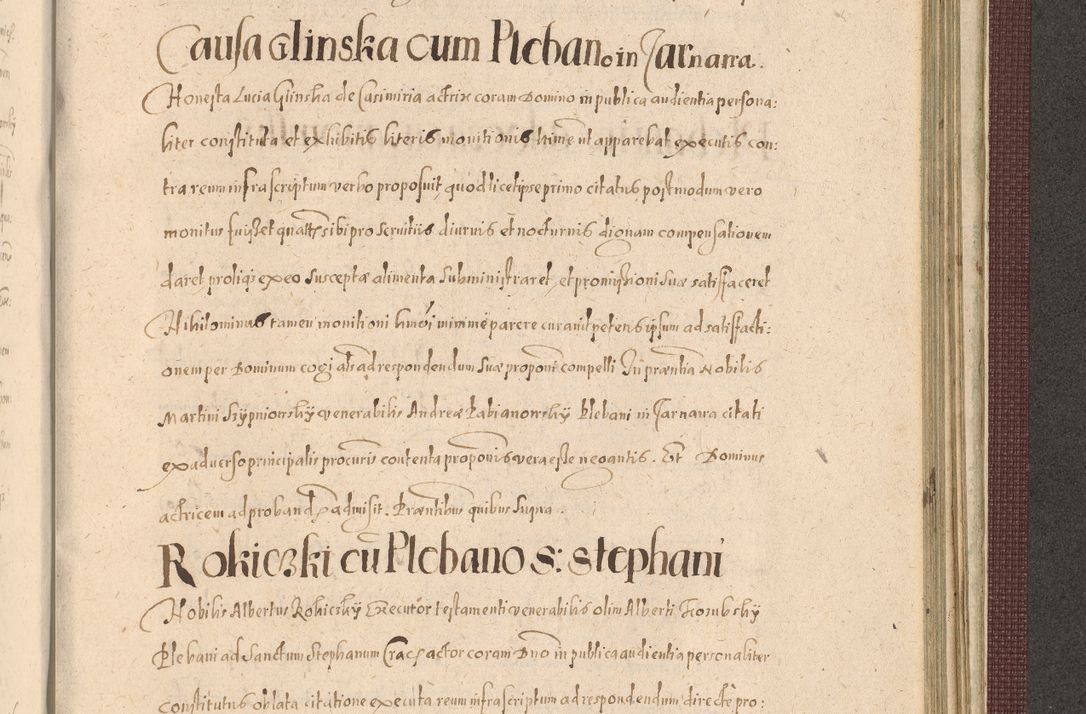 Causa Glinska cum Plebano in Jarnawa.
Honesta Lucia Glinska de Casimiria actrix coram Domino in publica audientia persona:
liter constituta et exhibitis literis monitionis ut apparebat executis con:
tra reum infrascriptum verbo proposuit quod licet ipse primo citatus postmodum vero
monitus fuisset sibi pro servitiis diurnis et nocturnis dignam compensationem
daret proliqs ex eo susceptæ alimenta subministraret, et promissioni suæ satisfaceret
Nihilominus tamen monitioni hmōi minime parere curavit petens ipsum ad satisfacti:
onem per Dominum cogi als ad respondendum suæ proponi compelli In præntia Nobilis
Martini Szypniowsky venerabilis Andreæ Fabianowsky Plebani in Jarnawa citati
ex adverso principalis procuris contenta proponis vera esse negantis. Et Dominus
actricem ad proband admisit. Præntibus quibus supra
Rokiczki cū Plebano S: Stephani
Nobilis Albertus Rokiczky Executor testamenti venerabilis olim Alberti Kozubsky
Plebani ad Sanctum Stephanum Crac actor coram Dno in publica audientia personaliter
constitutus oblata citatione executa reum infrascriptum ad respondendum directe pro: